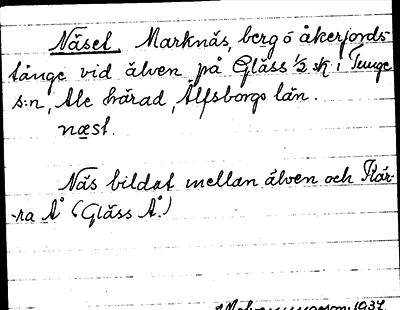 Näset Marknäs, berg o åkerjords-
tånge vid älven på Gläss ½ sk i Tunge
s:n, Ale härad, Älfsborgs län.
næst.
Näs bildat mellan älven och Här-
-ra Å (Gläss Å.)
1937